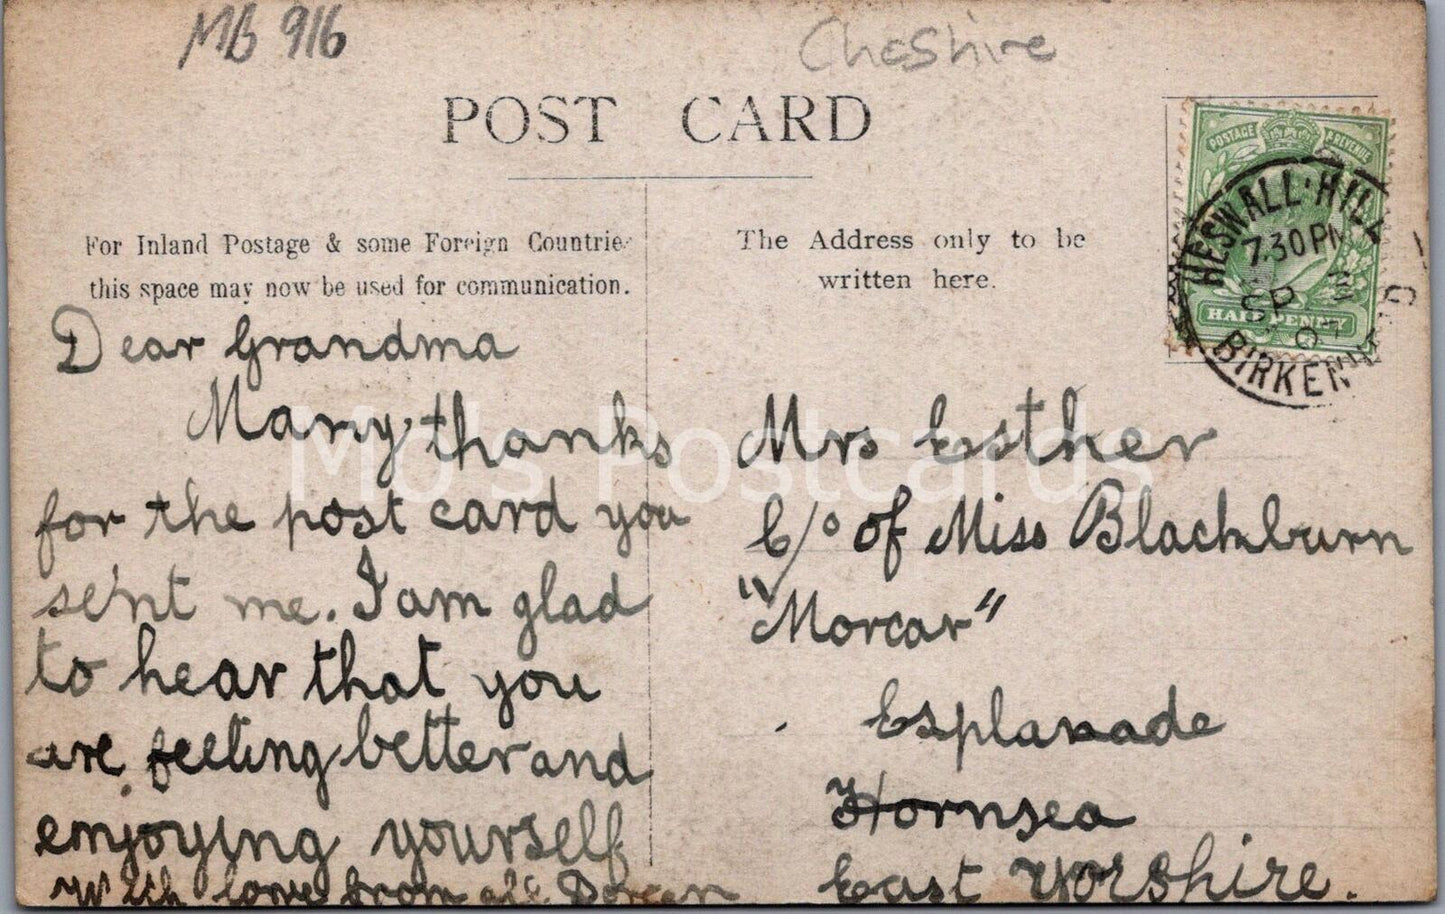 MB 916
Cheshire
POST CARD
For Inland Postage & some Foreign Countries
this space may now be used for communication.
The Address only to be
written here.
POSTAGE & REVENUE
HALF PENNY
HESWALL·HILL
7.30 PM
SP
07
BIRKENHEAD
Dear Grandma
Many thanks
for the post card you
sent me. I am glad
to hear that you
are feeling better and
enjoying yourself
With love from all. Doreen
Mrs Esther
C/o of Miss Blackburn
"Morcar"
Esplanade
Hornsea
East Yorshire.
Mo's Postcards